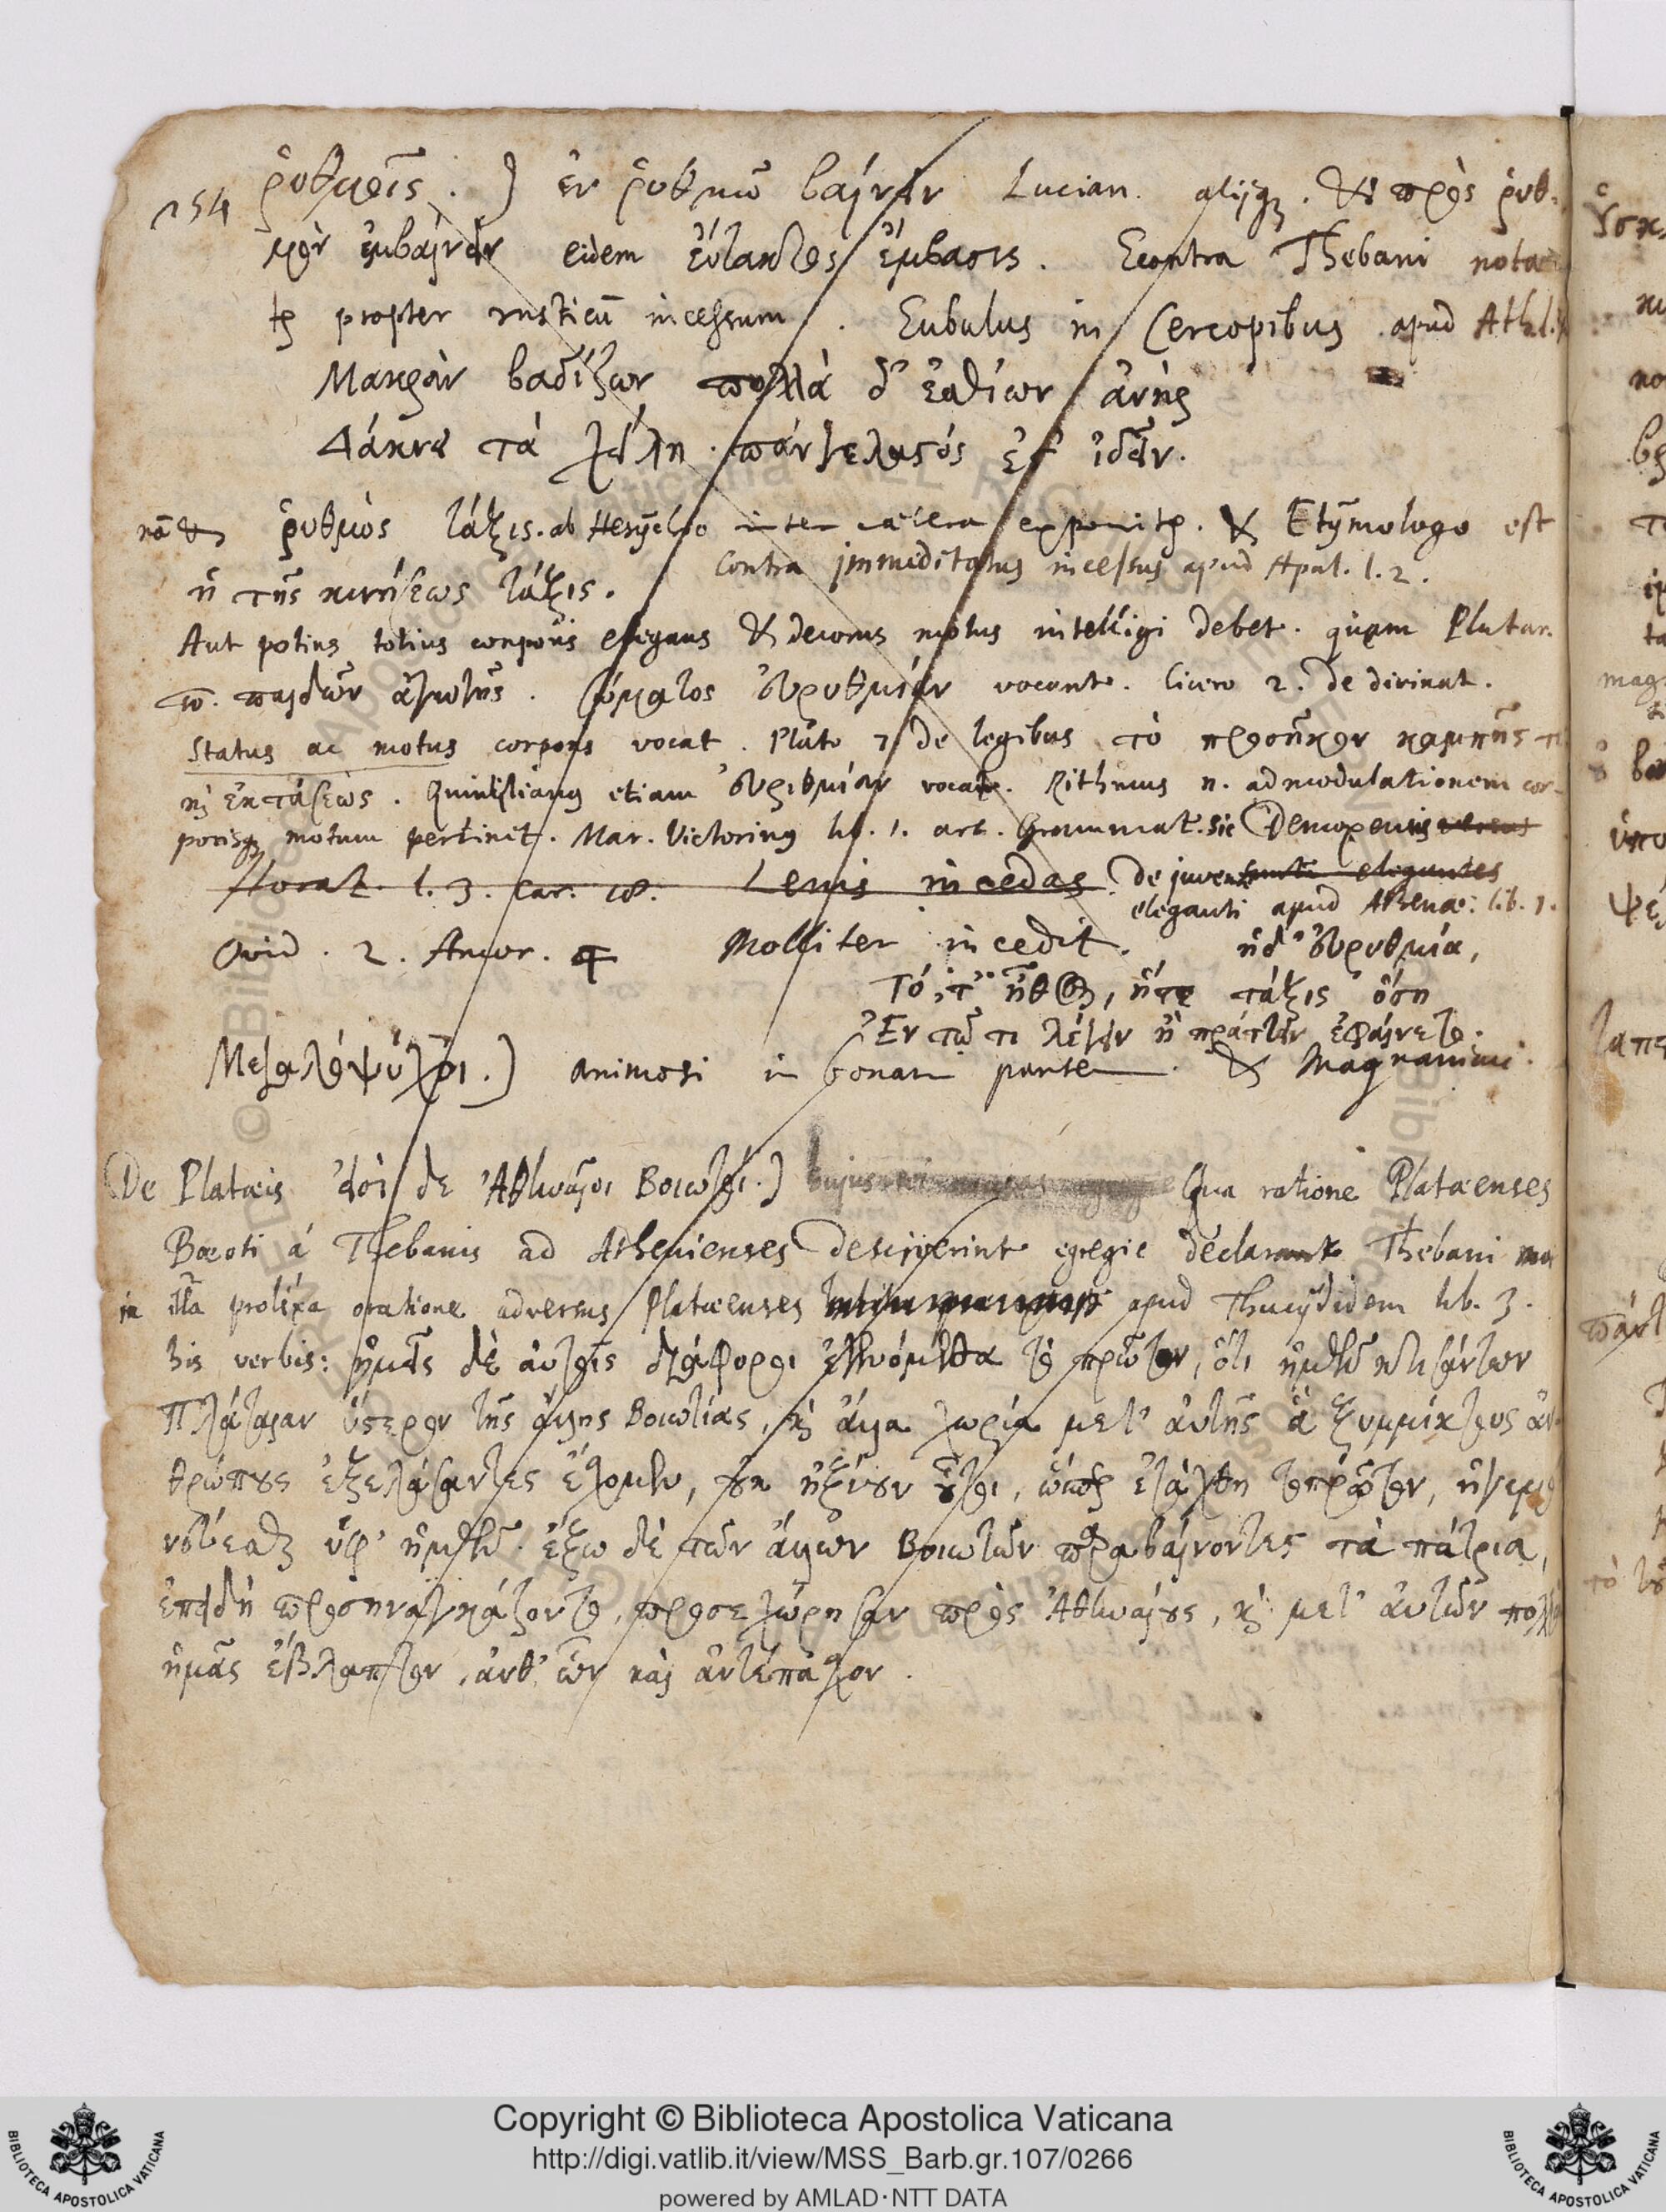 154 ῥυθμοῖς. ) ἐν ῥυθμῷ βαίνειν Lucian. aliique. & πρὸς ῥυθ-
μὸν ἐμβαίνειν eidem εὔτακτος ἔμβασις. Econtra Thebani notan
tur propter rusticū incessum. Eubulus in Cercopibus apud Athe.
Μακρὰν βαδίζων πολλὰ δ' ἐσθίων ἀνὴρ
Δάκνει τὰ χείλη παγγέλαστός ἐστ' ἰδεῖν.
nā & ῥυθμὸς τάξις. ab Hesychio inter caetera exponitur. & Etymologo est
ἡ τῆς κινήσεως τάξις. Contra immeditatus incessus apud Apul. l. 2.
Aut potius totius corporis elegans & decorus motus intelligi debet. quam Plutar.
π. παίδων ἀγωγῆς. σώματος εὐρυθμίαν vocant. Cicero 2. de divinat.
Status ac motus corporis vocat. Plato 7 de legibus τὸ προσῆκον καμπῆς τε
καὶ ἐκτάσεως. Quintilianus etiam εὐριθμίαν vocat. Rithmus n. ad modulationem cor-
porisque motum pertinet. Mar. Victorinus lib. 1. art. Grammat. sic Demoxenus
Horat. l. 3. car. 18. Lenis incedas de juvene
eleganti apud Athenae: lib. 1.
Ovid. 2. Amor. 4 Molliter incedit. ἡδ' εὐρυθμία,
Τό, τ' ἦθος, ἥτε τάξις ὅση
Ἐν τῷ τι λέγειν ἢ πράττειν ἐφαίνετο.
Μεγαλόψυχοι. ) animosi in bonam partem & Magnanimi.
De Plataeis εἰσὶ δε Ἀθηναῖοι Βοιωτοί. ) hujus Qua ratione Plataeenses
Baeoti á Thebanis ad Athenienses desciverint egregie declarant Thebani
in illa prolixa oratione adversus Plataeenses apud Thucydidem lib. 3.
his verbis: ἡμεῖς δὲ αὐτοῖς διάφοροι ἐγενόμεθα τὸ πρῶτον, ὅτι ἡμῶν κτισάντων
Πλάταιαν ὕστερον τῆς ἄλλης Βοιωτίας, καὶ ἄλλα χωρία μετ' αὐτῆς ἃ ξυμμίκτους ἀν-
θρώπους ἐξελάσαντες ἔσχομεν, οὐκ ἠξίουν οὗτοι, ὥσπερ ἐτάχθη τὸ πρῶτον, ἡγεμο
νεύεσθαι ὑφ' ἡμῶν. ἔξω δὲ τῶν ἄλλων Βοιωτῶν παραβαίνοντες τὰ πάτρια,
ἐπειδὴ προσηναγκάζοντο, προσεχώρησαν πρὸς Ἀθηναίους, καὶ μετ' αὐτῶν πολλὰ
ἡμᾶς ἔβλαπτον, ἀνθ' ὧν καὶ ἀντέπασχον.
Copyright © Biblioteca Apostolica Vaticana
http://digi.vatlib.it/view/MSS_Barb.gr.107/0266
powered by AMLAD·NTT DATA
BIBLIOTECA APOSTOLICA VATICANA
BIBLIOTECA APOSTOLICA VATICANA